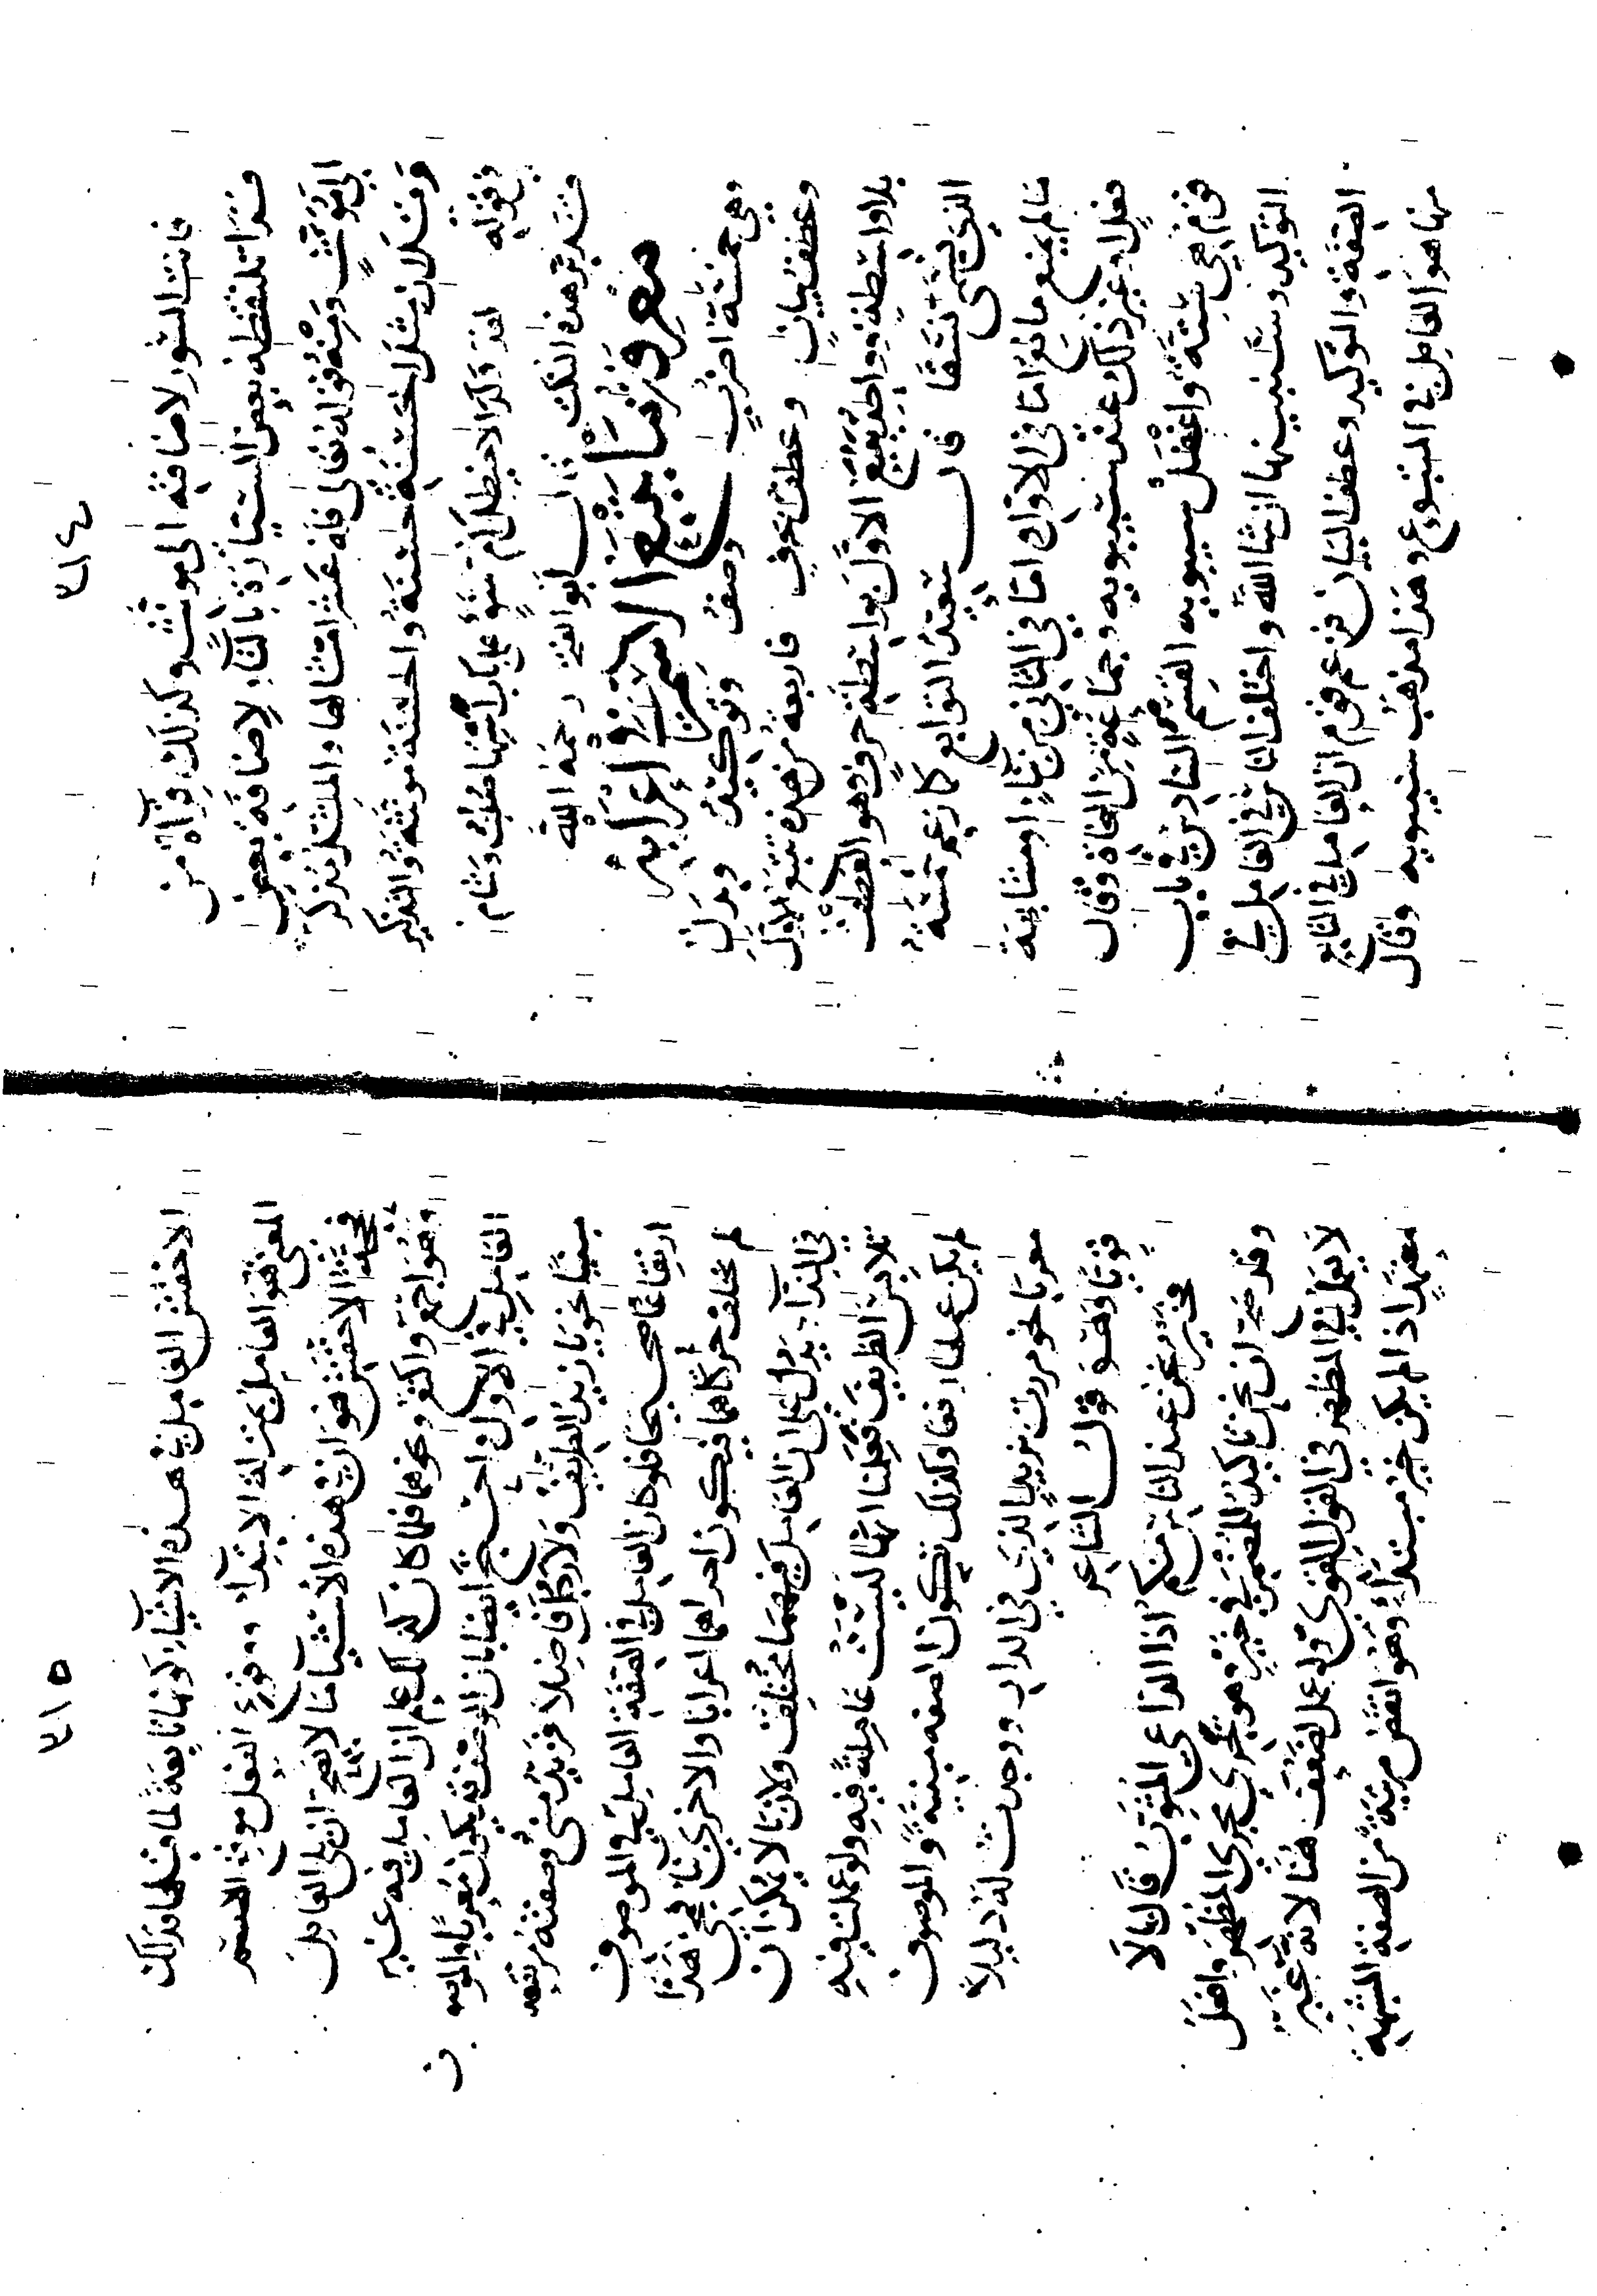 ٣١٤
فانت السور لاضافته الى مونث وكذلك قرآة من
قرا تلتقطه بعض السيارة بالتاء لاضافة بعض
الى مونث ومنه قوله تعالى فله عشر امثالها والمثل مذكر
ومثلان مثل احسنة حسنة والحسنة مونثة والتذكير
في قوله لقد ولد الاخيطل ام سوء على باب استها صلب وشام
فتدبر هذه النكت قال ابو الفتح رحمه الله
معرفة ما يتبع الاسم في اعرابه
وهي خمسة اضرب وصف وتوكيد وبدل
وعطف بيان وعطف حرف فاربعة من هذه تتبع الاول
بلا واسطة وواحد يتبع الاول بواسطة حرف وهو العطف
الذي يسمى نسقا قال سعيد التوابع كما زعم خمسة
ما لم يمنع مانع اما في الاول اما في الثاني من بناء او مشابهة
فعل او غير ذلك عند سيبويه وجماعة من النحاة وقال
قوم هي ستة واغفل سيبويه القسم السادس في باب
التوكيد وسنبينها ان شا الله واختلف الناس في العامل في
الصفة والتوكيد وعطف البيان فزعم قوم ان العامل في التابع
منها هو العامل في المتبوع وهذا مذهب سيبويه وقال
٣١٥
الاخفش العامل في هذه الاشيا كونها تابعة لما قبلها فذلك
المعنى هو العامل بمنزلة الابتدآ ووقوع الفعل موقع الاسم
فحجة الاخفش هو ان في هذه الاشيآ ما لا يصح ان يلي العامل
وهو اجمع واكتع ونحوهما فلما كان كذلك علم ان العامل فيه غير
العامل في الاول واحتج ايضا بان الوصف قد يكون معربا والموصوف
مبنيا نحو يا زيد الظريف ولا رجل فاضلا فزيد مبني وصفته مرتفعة
ارتفاعا صحيحا فلو كان العامل في الصفة العامل في الموصوف
لم يختلف حركاهما فيكون احداهما اعرابا والاخرى بنآ فمجى هذا
في الندآ يدل على ان العامل فيهما مختلف ولان يا لا يمكن ان
تلابس الظريف فعلمنا انها ليست عاملة فيه ولو عملت فيه
لم يكن عملها رفعا وكذلك تكون الصفة مبنية والموصوف
معربا نحو مررت بزيد الذي في الدار ووجدت له دليلا
قويا وهو قول الشاعر
فخير نحن عند الناس منكم اذا الداعي المثوب قال يا لا
وقد صح ان نحن تاكيد للضمير في خير هو يجري مجرى المظهر وافعل
لا يعمل في المظهر في القول القوي ولو عمل لضعف هنا لانه غير
معتمد اذ لم يكن خبر مبتدأ وهو انقص مرتبة من الصفة المشبهة